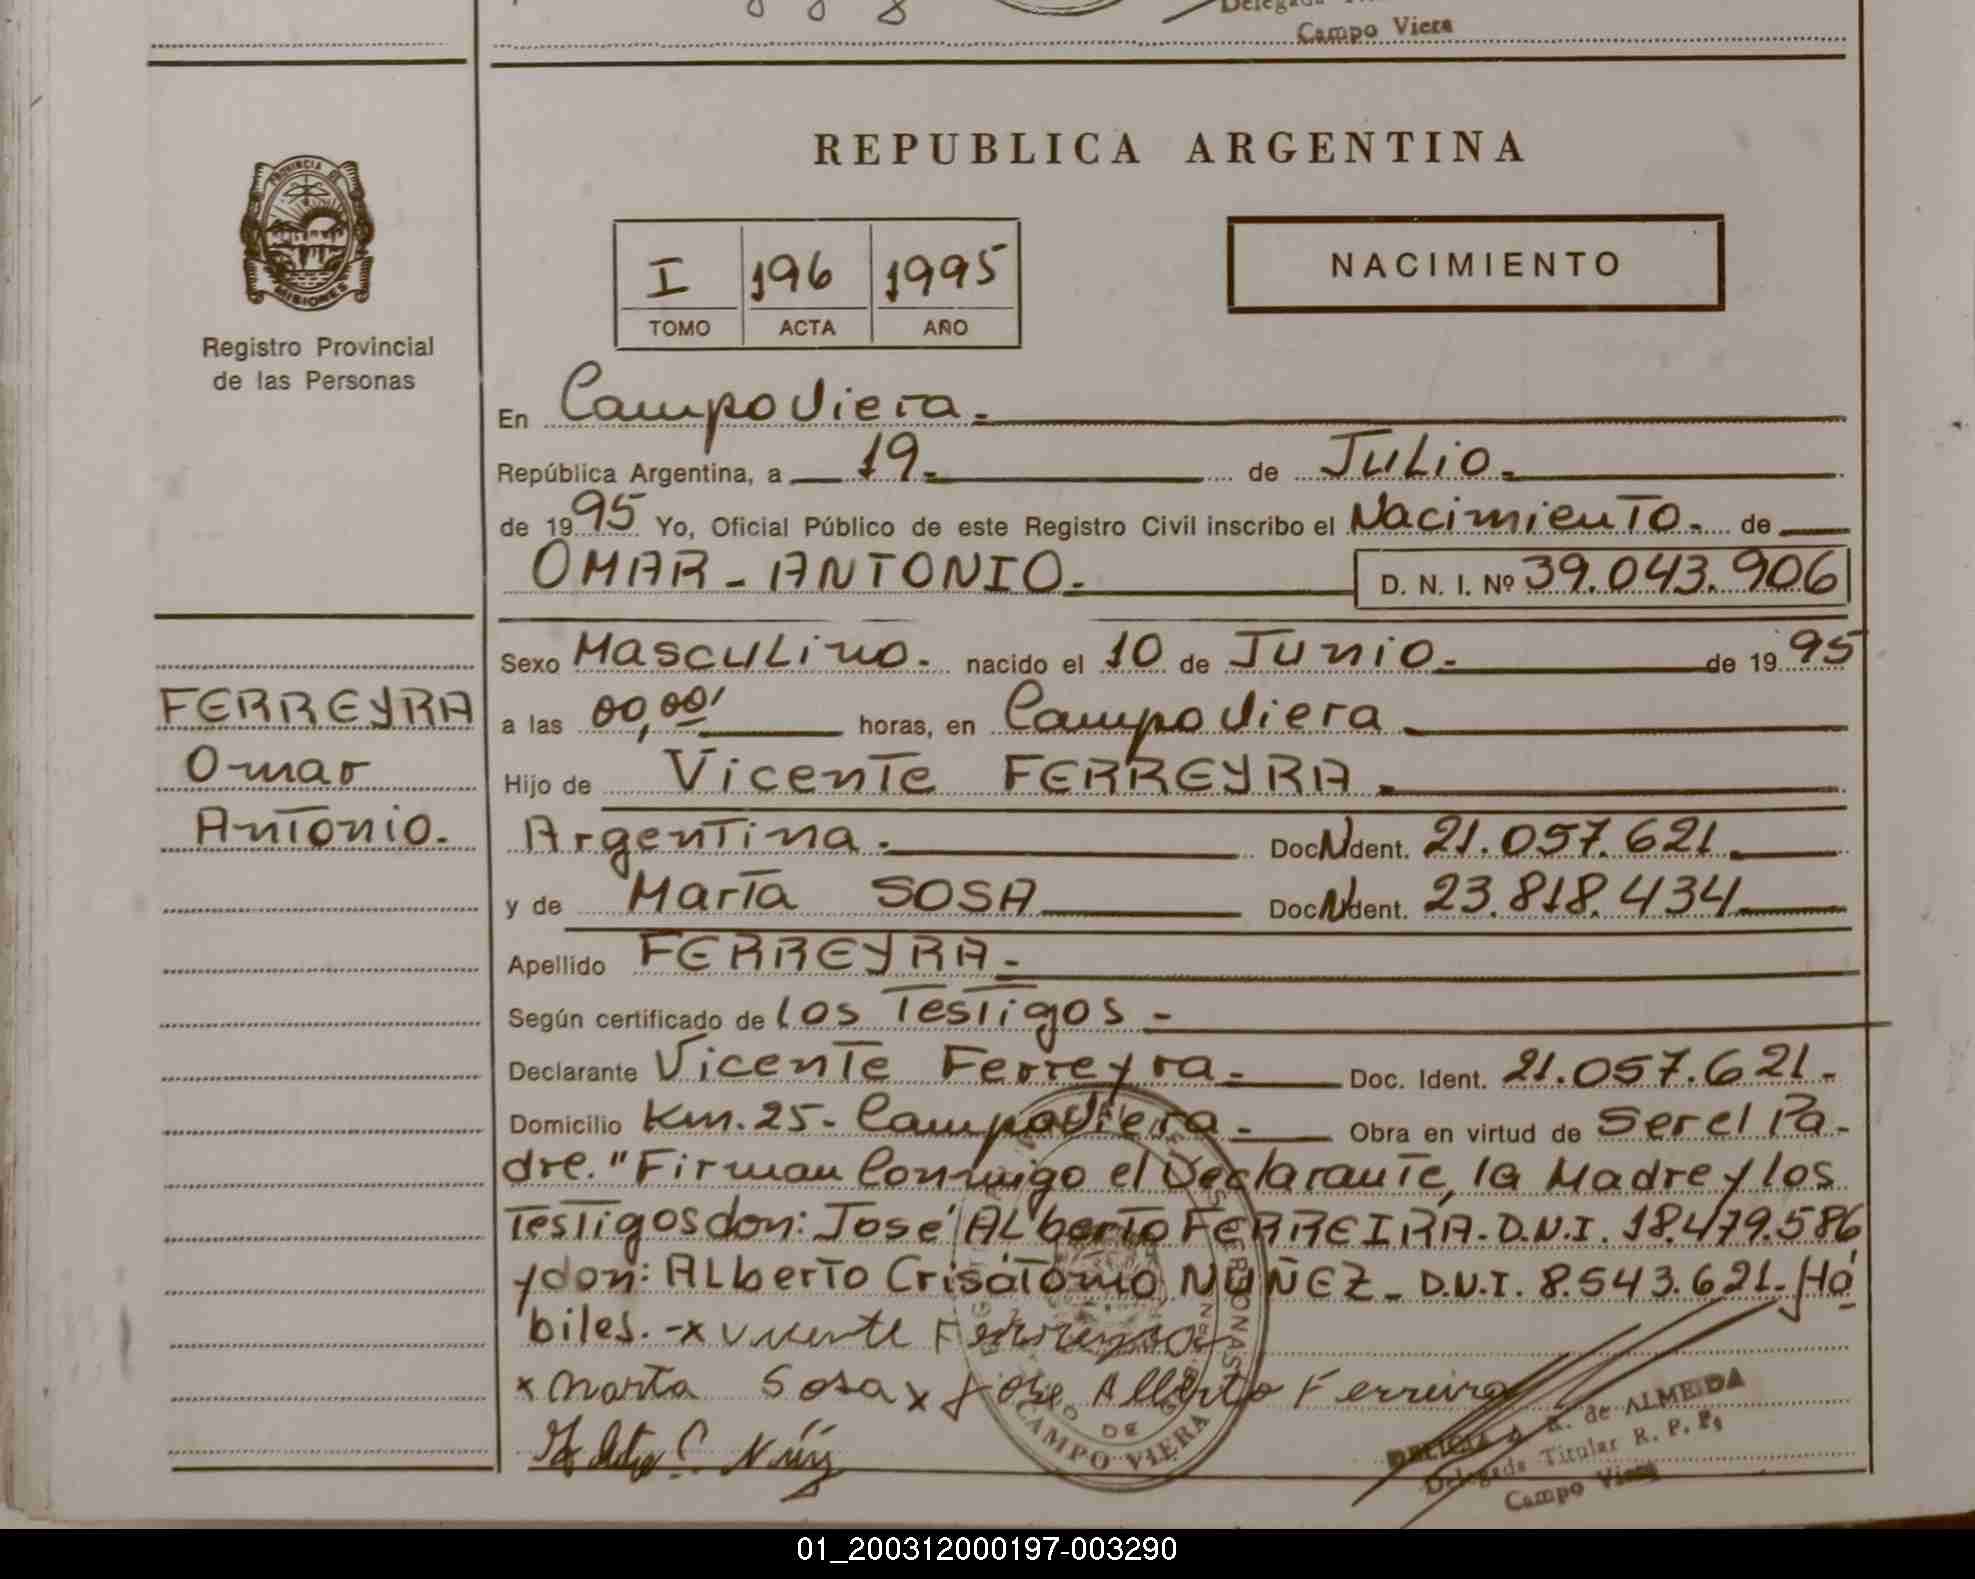 Campo Viera
REPUBLICA ARGENTINA
PROVINCIA DE
MISIONES
Registro Provincial
de las Personas
I 196 1995
TOMO ACTA AÑO
NACIMIENTO
En Campo Viera.
República Argentina, a 19. de Julio.
de 1995 Yo, Oficial Público de este Registro Civil inscribo el Nacimiento. de
OMAR - ANTONIO. D. N. I. Nº 39.043.906
Sexo Masculino. nacido el 10 de Junio. de 1995
a las 00,00' horas, en Campo Viera
Hijo de Vicente FERREYRA
Argentina. Doc. Ident. 21.057.621
y de Marta SOSA Doc. Ident. 23.818.434
Apellido FERREYRA -
Según certificado de los Testigos -
Declarante Vicente Ferreyra - Doc. Ident. 21.057.621 -
Domicilio Km. 25 - Campo Viera - Obra en virtud de Ser el Pa-
dre. "Firman Conmigo el Declarante, la Madre y los
Testigos don: José Alberto FERREIRA. D.N.I. 18.479.586
y don: Alberto Crisótomo NUÑEZ - D.N.I. 8.543.621. Há
biles. - x Vicente Ferreyra
x Marta Sosa x José Alberto Ferreira
FERREYRA
Omar
Antonio.
CAMPO VIERA
A. R. de ALMEIDA
Delegada Titular R. P. P.
Campo Viera
01_200312000197-003290